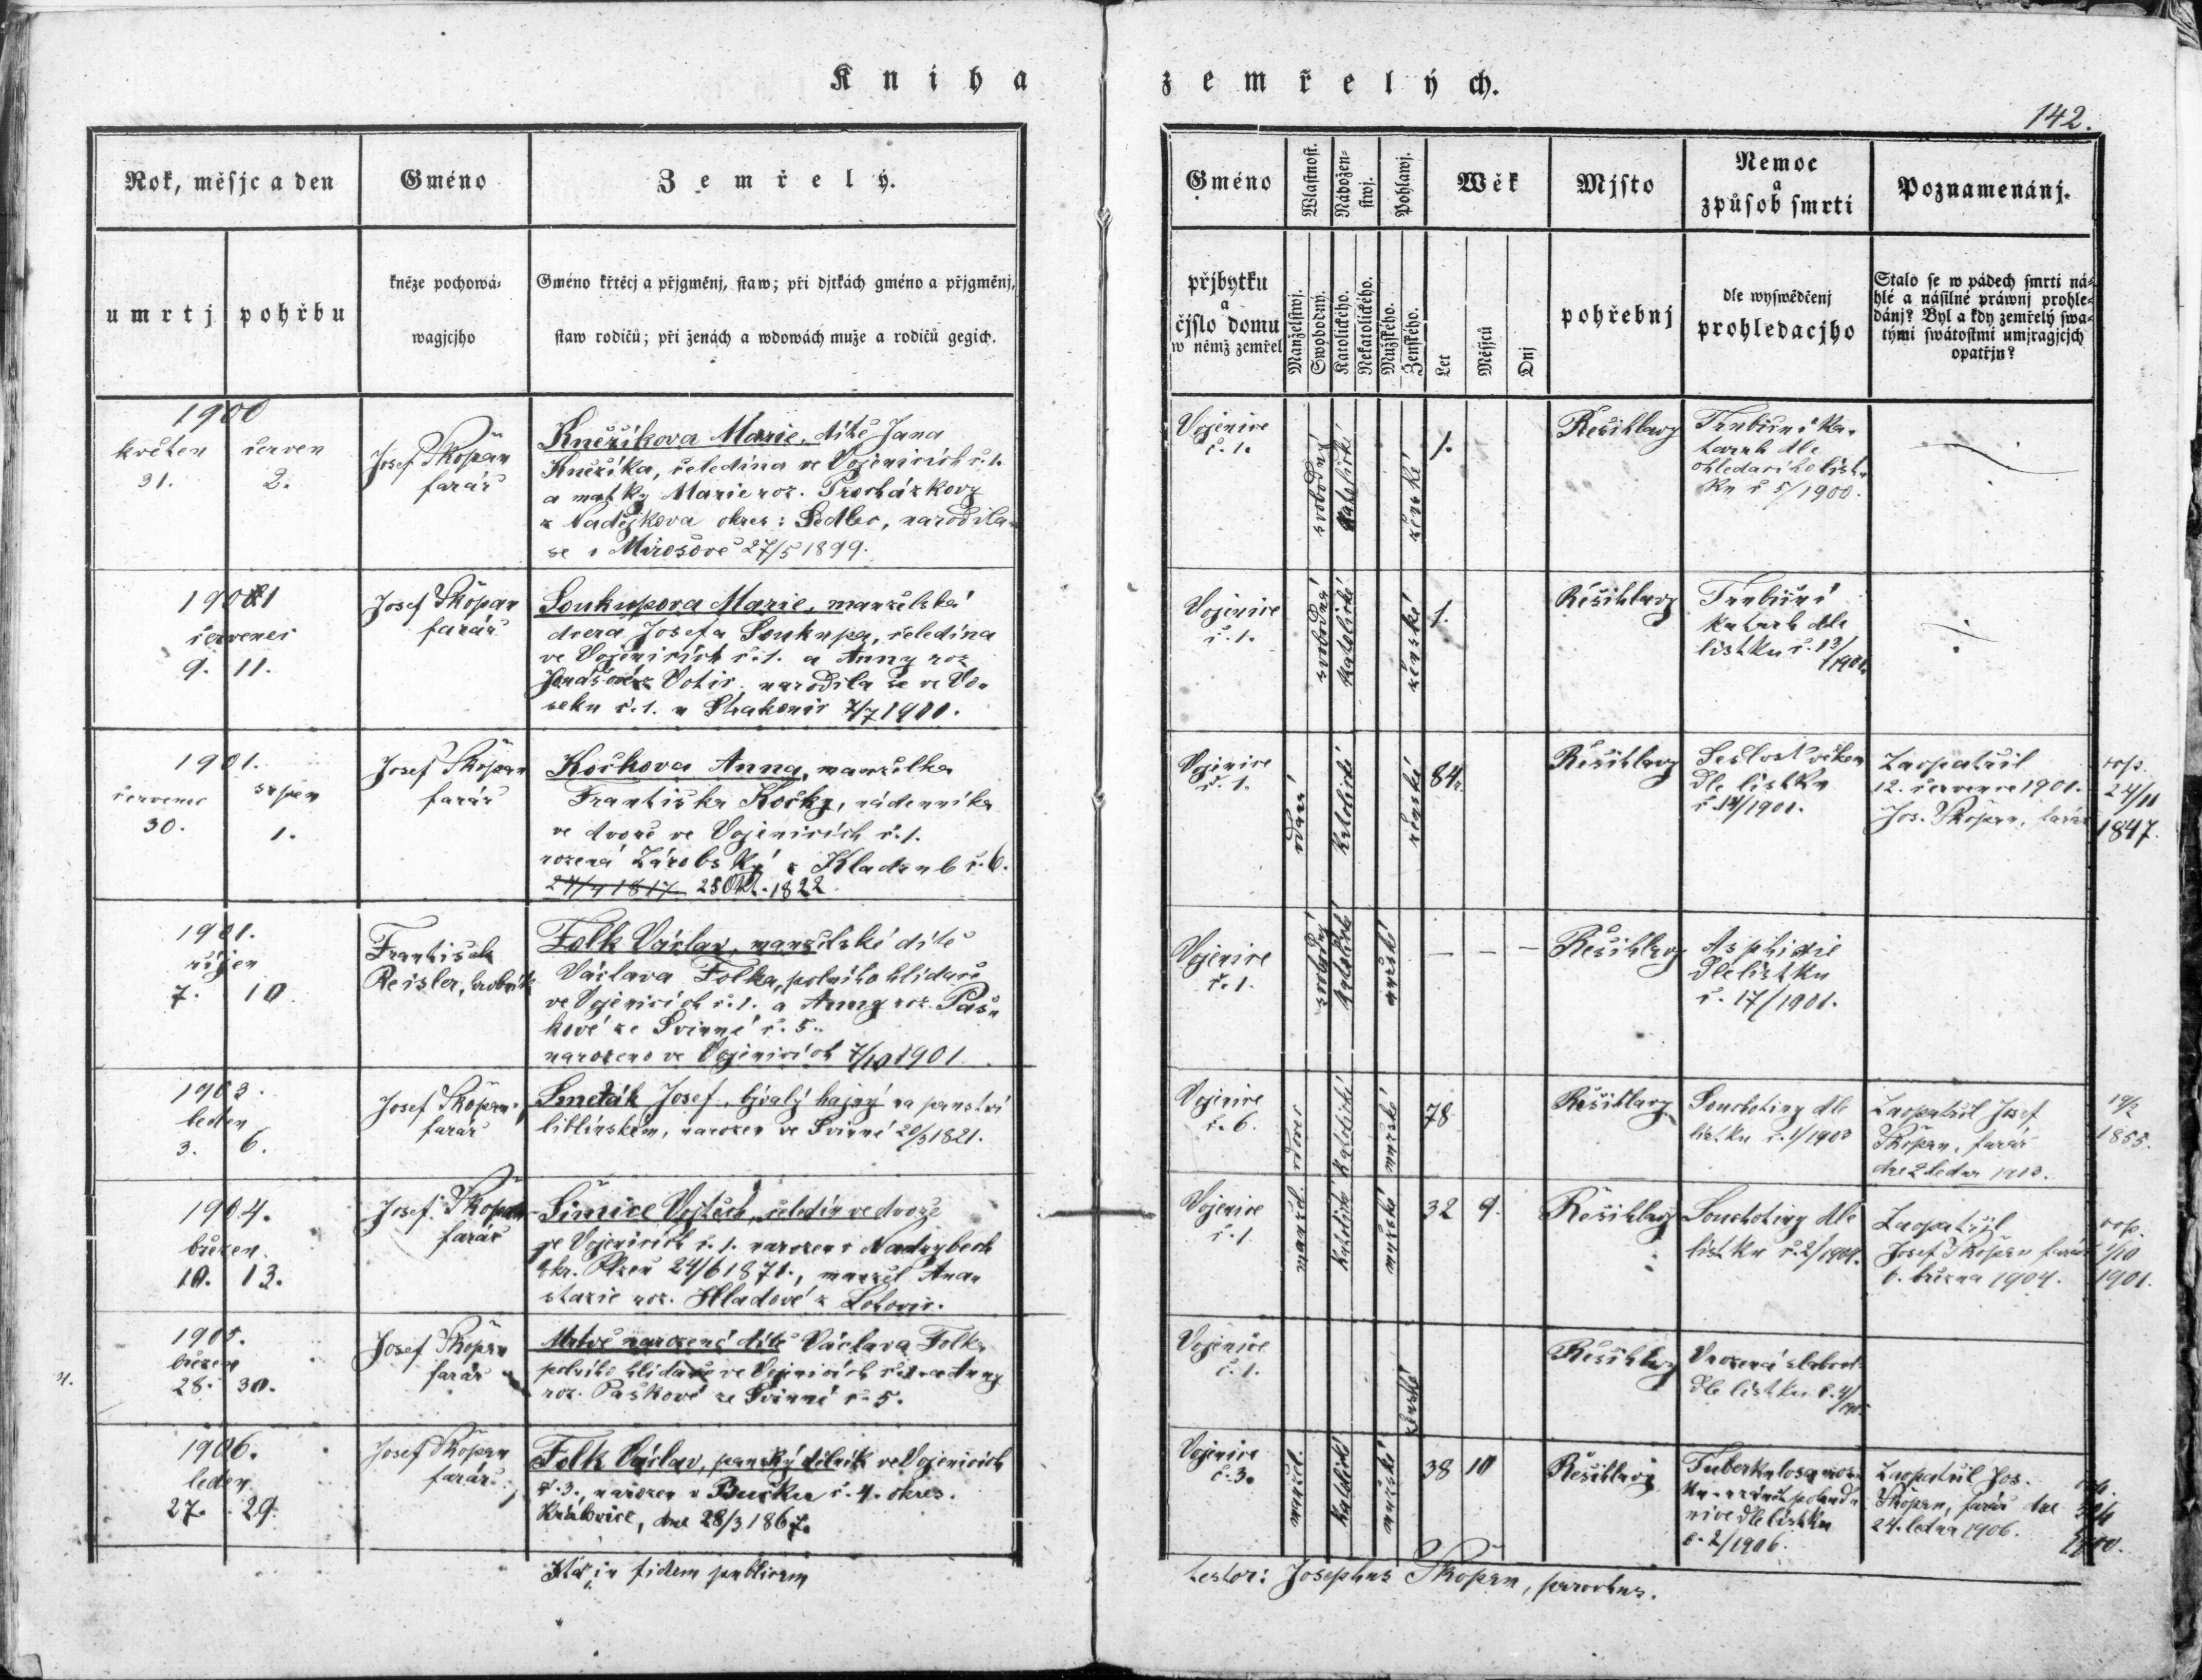 Kniha zemřelých.
142.
Rok, měsjc a den
Gméno
Zemřelý.
umrtj
pohřbu
kněze pochowá-
wagjcjho
Gméno křtěcj a přjgměnj, staw; při djtkách gméno a přjgměnj,
staw rodičů; při ženách a wdowách muže a rodičů gegich.
1900
květen červen
31. 2.
Josef Škopán
farář
Kněžíkova Marie, dítě Jana
Kněžíka, čeledína ve Vojenicích č. 1.
a matky Marie roz. Procházkovy
z Nadějkova okres: Sedlec, narodila
se v Mirošově 27/5 1899.
1901
červenec
9. 11.
Josef Škopán
farář
Soukupova Marie, manželská
dcera Josefa Soukupa, čeledína
ve Vojenicích č. 1. a Anny roz
Votic, narodila se ve Vo-
seku č. 1. u 7/7 1900.
1901.
červenec srpen
30. 1.
Josef Škopán
farář
Kočkova Anna, manželka
Františka Kočky, nádenníka
ve dvoře ve Vojenicích č. 1.
rozená z Kladrub č. 6.
1817 25 Okt. 1822
1901.
říjen
7. 10
František
Reisler,
Folk Václav, manželské dítě
Václava Folka, polního hlídače
ve Vojenicích č. 1. a Anny roz. Paš-
kové ze Svinné č. 5.
narozeno ve Vojenicích 7/10 1901
1903.
leden
3. 6.
Josef Škopán,
farář
Smeták Josef, bývalý hajný na panství
libínském, narozen ve Svinné 20/3 1821.
1904.
březen
10. 13.
Josef Škopán
farář
Šimice Vojtěch, čeledín ve dvoře
ve Vojenicích č. 1. narozen v Nadrybech
okr. Plzeň 24/6 1871., manžel Ana-
stazie roz. Hladové z
1905.
březen
28. 30.
4.
Josef Škopán
farář
Mrtvě narozené dítě Václava Folka
polního hlídače ve Vojenicích č. 1. a Anny
roz. Paškové ze Svinné č. 5.
1906.
leden
27. 29.
Josef Škopán
farář
Folk Václav, panský dělník ve Vojenicích
č. 3. narozen v Bučku č. 4. okres.
Kralovice, dne 28/3 1867.
in fidem publicam
Gméno
přjbytku
a
čjslo domu
w němž zemřel
Wlastnost.
Manželstwj.
Swobodný.
Nábožen-
stwj.
Katolického.
Nekatolického.
Pohlawj.
Mužského.
Ženského.
Wěk
Let
Měsjců
Dnj
Mjsto
pohřebnj
Nemoc
a
způsob smrti
dle wyswědčenj
prohledacjho
Poznamenánj.
Stalo se w pádech smrti ná-
hlé a násilné práwnj prohle-
dánj? Byl a kdy zemřelý swa-
tými swátostmi umjragjcjch
opatřjn?
Vojenice
č. 1.
svobodný
katolické
ženské
1.
Řešihlavy
Trubiční ka-
tarrh dle
ohledacího líst-
ku č 5/1900.
Vojenice
č. 1.
svobodná
katolické
ženské
1.
Řešihlavy
Trubiční
katarh dle
lístku č. 13/
1901.
Vojenice
č. 1.
vdaná
katolické
ženské
84
Řešihlavy
Sešlost věkem
dle lístku
č. 14/1901.
Zaopatřil
12. července 1901.
Jos. Škopán, farář
cop.
24/11
1847.
Vojenice
č. 1.
svobodný
katolické
mužské
— — —
Řešihlavy
Asphixie
dle lístku
č. 17/1901.
Vojenice
č. 6.
vdovec
katolické
mužské
78
Řešihlavy
Souchotiny dle
lístku č. 1/1903
Zaopatřil Josef
Škopán, farář
dne 2 ledna 1903.
19/2
1855.
Vojenice
č. 1
manžel.
katolické
mužské
32 9.
Řešihlavy
Souchotiny dle
lístku č. 2/1904.
Zaopatřil
Josef Škopán farář
6. března 1904.
cop.
1/10
1901.
Vojenice
č. 1.
ženské
Řešihlavy
Vrozená slabost
dle lístku č. 4/
1905
Vojenice
č. 3.
manžel.
katolické
mužské
38 10
Řešihlavy
Tuberkulosa
dle lístku
č. 2/1906.
Zaopatřil Jos.
Škopán, farář dne
24. ledna 1906.
1900.
testor: Josephus Škopán, parochus.